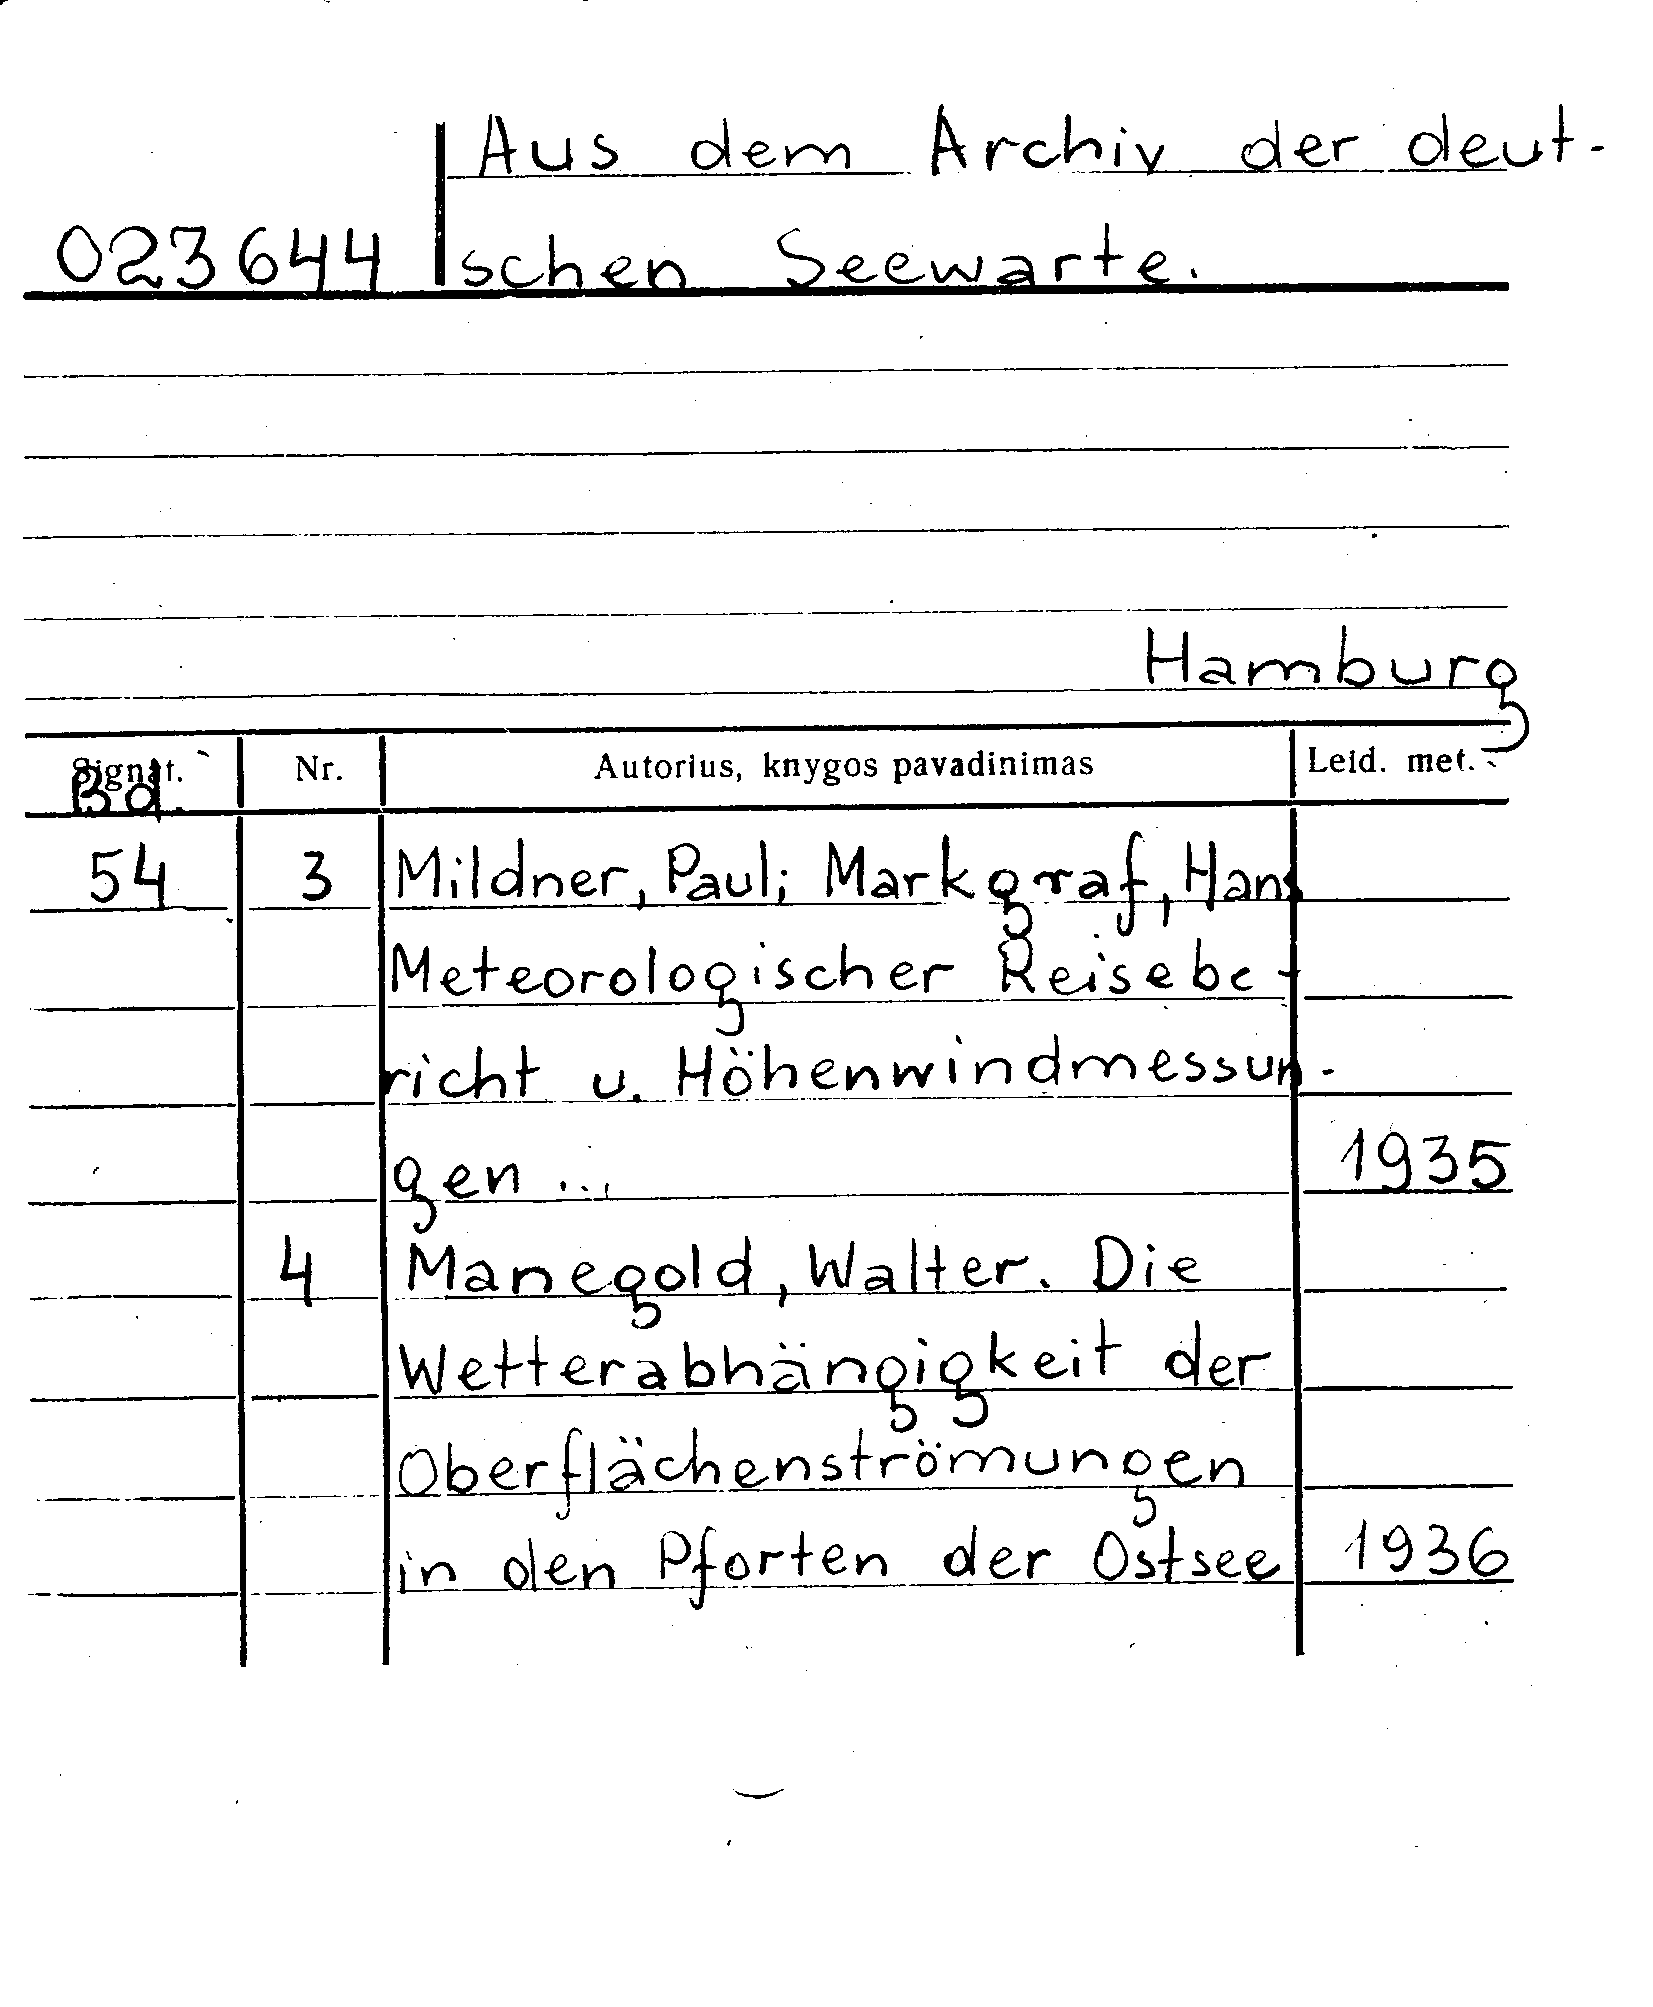 Aus dem Archiv der deut-
023644 schen Seewarte.
Hamburg
Signat. Nr. Autorius, knygos pavadinimas Leid. met.
Bd.
54 3 Mildner, Paul; Markgraf, Hans
Meteorologischer Reisebe-
richt u. Höhenwindmessun-
gen ... 1935
4 Manegold, Walter. Die
Wetterabhängigkeit der
Oberflächenströmungen
in den Pforten der Ostsee 1936